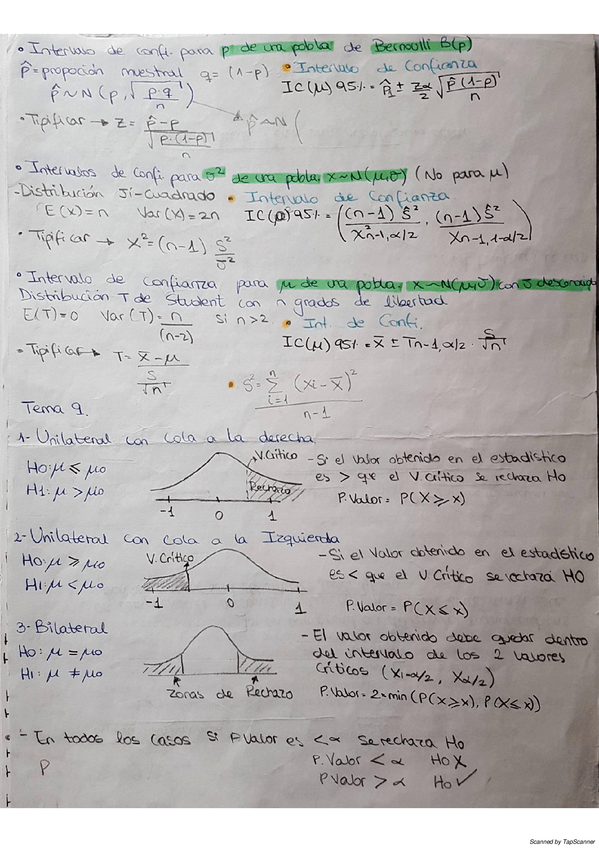 • Intervalo de confi. para p de una pobla. de Bernoulli B(p)
p̂ = propoción muestral q = (1-p) • Intervalo de Confianza
p̂ ~ N (p, √(p·q/n)) IC(μ) 95% = p̂ ± zα/2 √(p̂(1-p̂)/n)
• Tipificar → z = (p̂-p)/√(p·(1-p)/n) p̂ ~ N (
• Intervalos de Confi para σ² de una pobla. X~N(μ,σ) (No para μ)
-Distribución Ji-Cuadrado • Intervalo de Confianza
E(x) = n Var(x) = 2n IC(σ) 95% = ((n-1) Ŝ²/X²n-1, α/2 , (n-1) Ŝ²/Xn-1, 1-α/2)
• Tipificar → X² = (n-1) S²/σ²
• Intervalo de confianza para μ de una pobla. X~N(μ,σ) con σ desconocida
Distribución T de Student con n grados de libertad
E(T) = 0 Var(T) = n/(n-2) si n>2 • Int. de Confi.
IC(μ) 95% = x̄ ± Tn-1, α/2 · S/√n
• Tipificar → T = (x̄-μ)/(S/√n)
• S² = Σ (xi - x̄)² / n-1
n
i=1
Tema 9.
1- Unilateral con Cola a la derecha
H0: μ ≤ μ0
H1: μ > μ0
V.Crítico
Rechazo
-1 0 1
- Si el valor obtenido en el estadístico
es > que el V.Crítico se rechaza H0
P.Valor = P(X ≥ x)
2- Unilateral con Cola a la Izquierda
H0: μ ≥ μ0
H1: μ < μ0
V. Crítico
-1 0 1
- Si el Valor obtenido en el estadístico
es < que el V.Crítico se rechaza H0
P.Valor = P(X ≤ x)
3- Bilateral
H0: μ = μ0
H1: μ ≠ μ0
Zonas de Rechazo
- El valor obtenido debe quedar dentro
del intervalo de los 2 valores
Críticos (X1-α/2, Xα/2)
P.Valor = 2·min (P(X≥x), P(X≤x))
- En todos los casos si P.Valor es < α se rechaza H0
P.Valor < α H0 X
P
P.Valor > α H0 ✓
Scanned by TapScanner